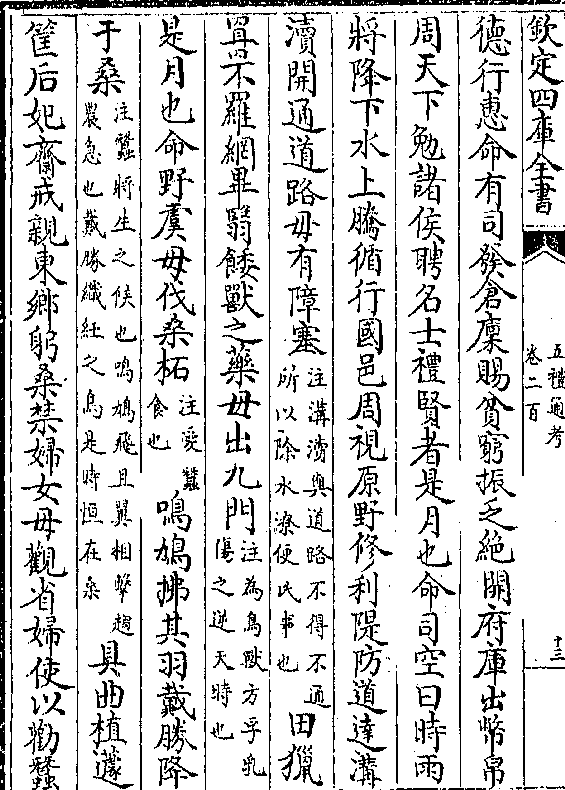 欽定四庫全書
五禮通考
卷二百
十三
德行惠命有司發倉廩賜貧窮振乏絶開府庫出幣帛
周天下勉諸侯聘名士禮賢者是月也命司空曰時雨
將降下水上騰循行國邑周視原野修利隄防道達溝
瀆開通道路毋有障塞注溝瀆與道路不得不通所以除水潦便民事也田獵
罝罘羅網畢翳餧獸之藥毋出九門注為鳥獸方孚乳傷之逆天時也
是月也命野虞毋伐桑柘注愛蠶食也鳴鳩拂其羽戴勝降
于桑注蠶將生之候也鳴鳩飛且翼相擊趨農急也戴勝織紝之鳥是時恒在桑具曲植籧
筐后妃齋戒親東鄉躬桑禁婦女毋觀省婦使以勸蠶